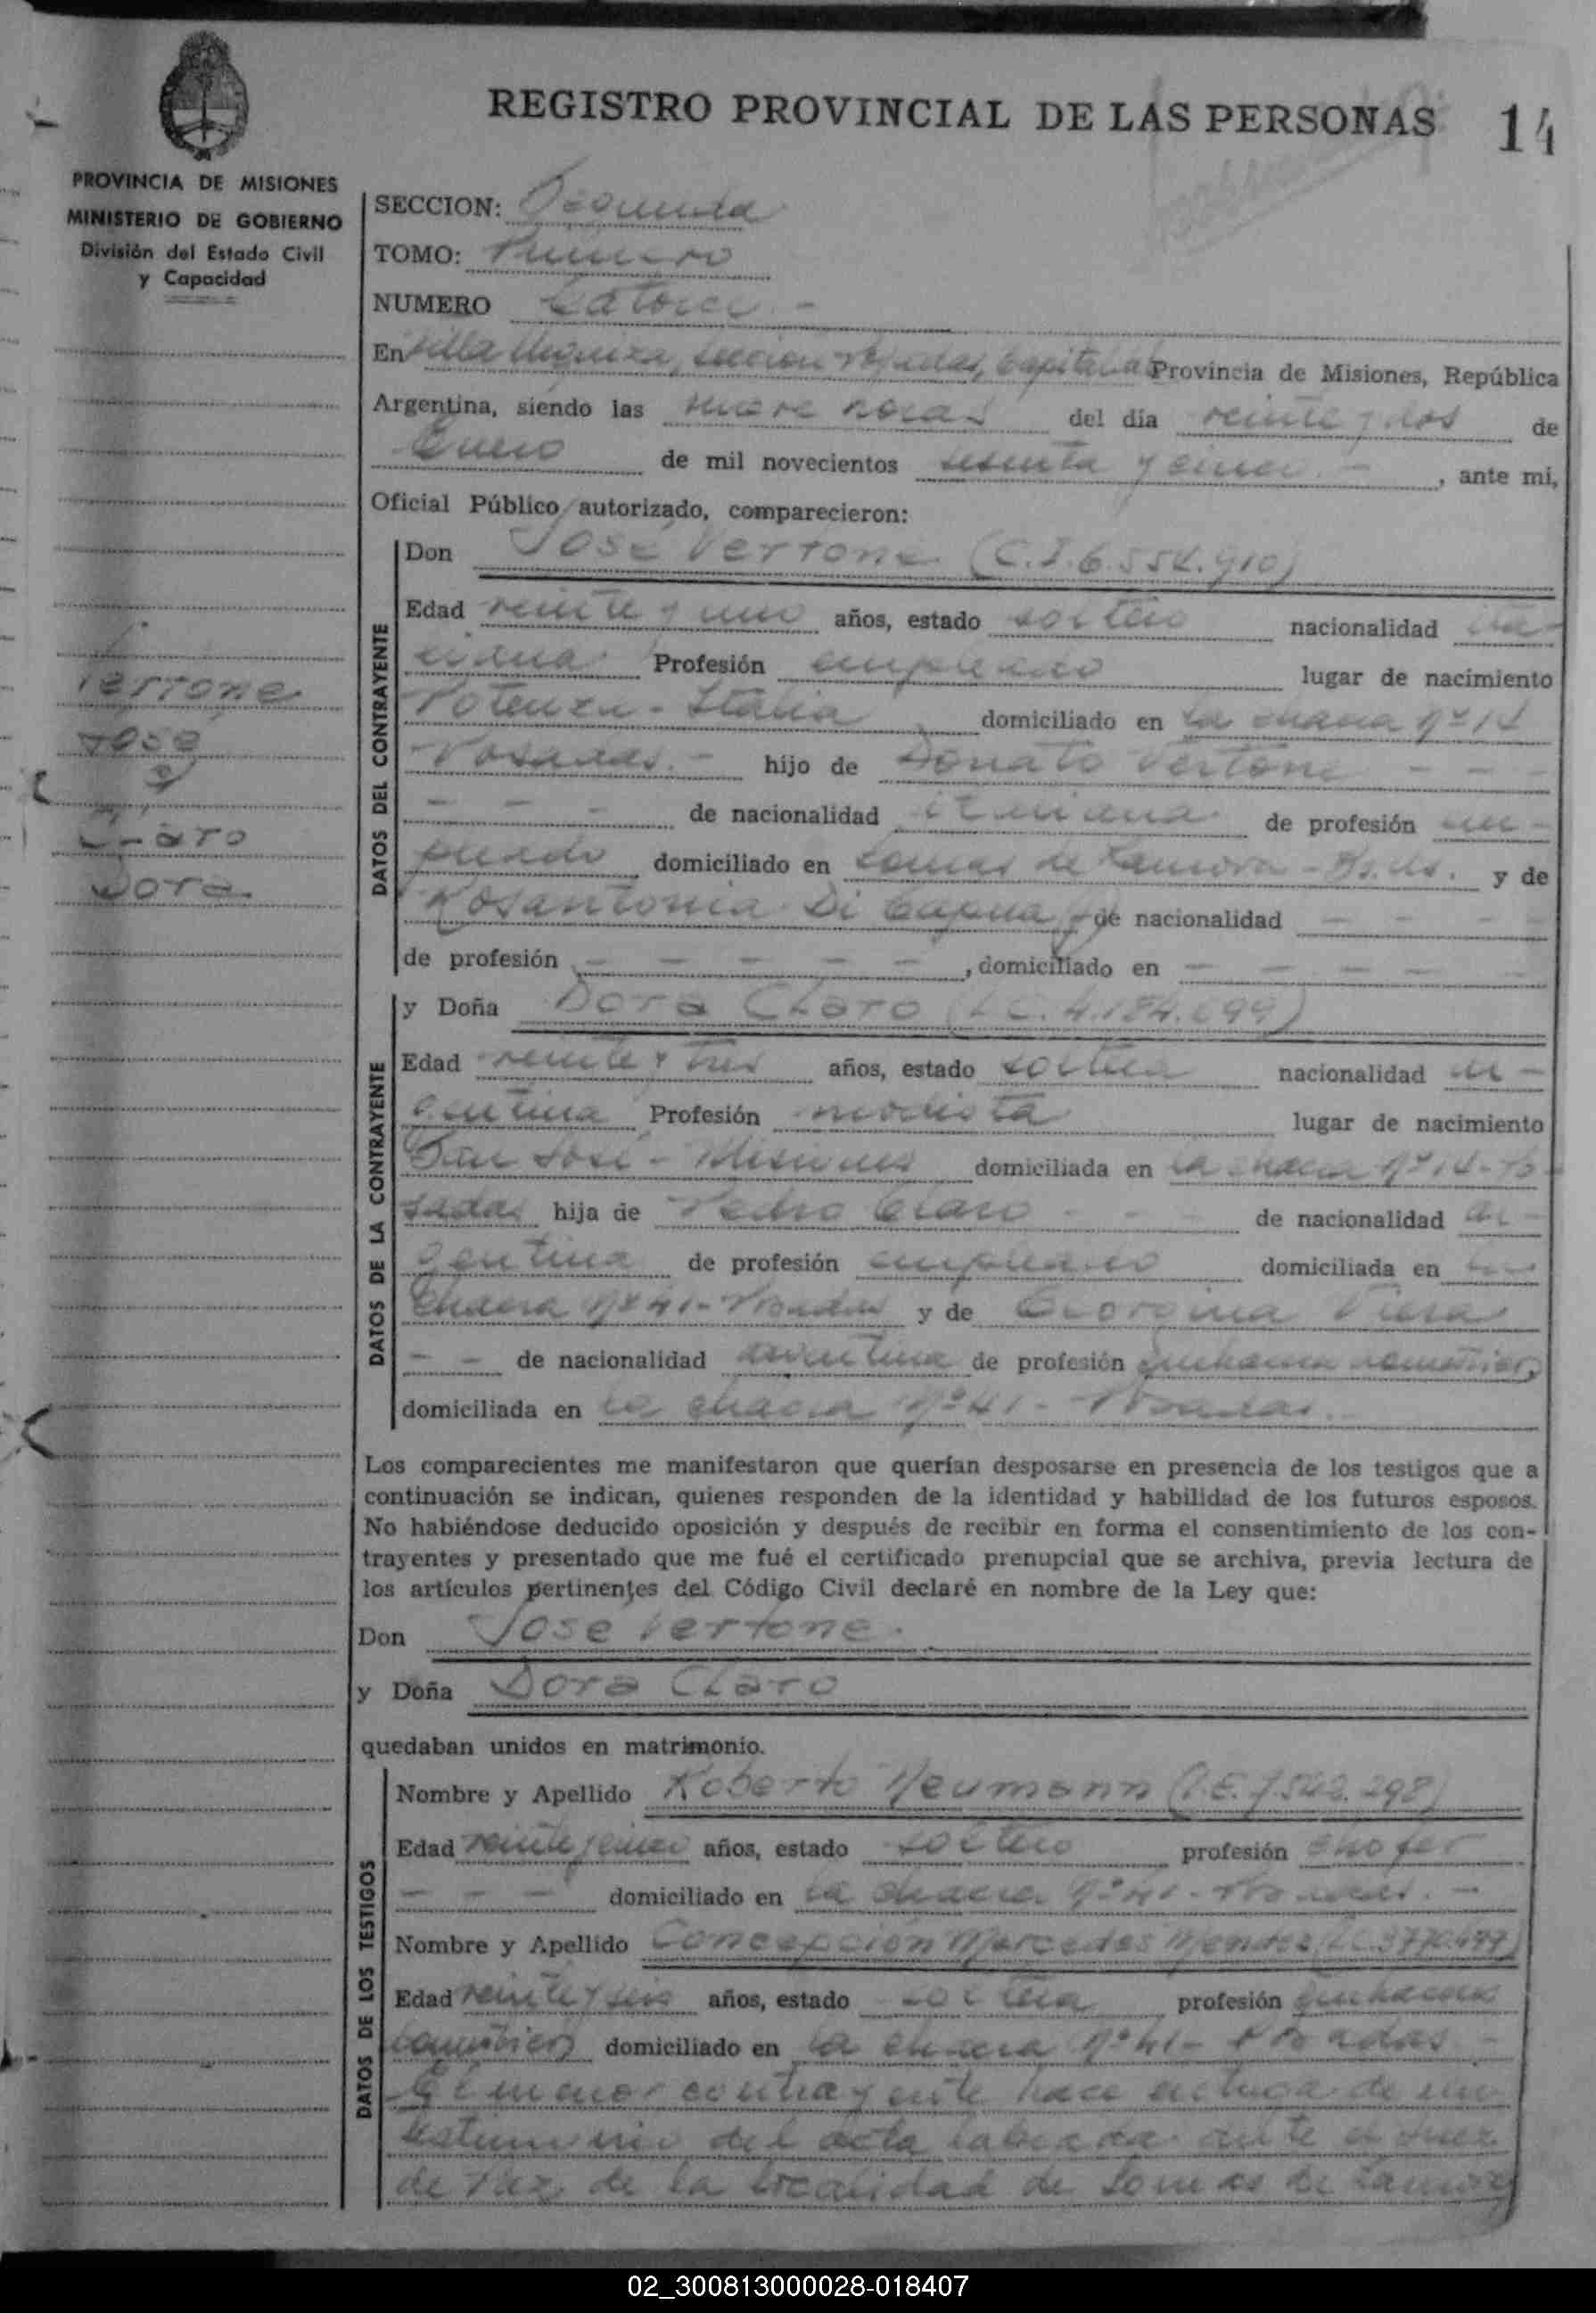 REGISTRO PROVINCIAL DE LAS PERSONAS 14
PROVINCIA DE MISIONES
MINISTERIO DE GOBIERNO
División del Estado Civil
y Capacidad
SECCION: Segunda
TOMO: Primero
NUMERO Catorce.-
En Villa Urquiza, sección Posadas, Capital Provincia de Misiones, República
Argentina, siendo las nueve horas del día veinte y dos de
Enero de mil novecientos sesenta y cinco.- , ante mi,
Oficial Público autorizado, comparecieron:
Vertone
José
y
Claro
Dora
DATOS DEL CONTRAYENTE
Don José Vertone (C.I. 6.554.910)
Edad veinte y uno años, estado soltero nacionalidad ita-
liana Profesión empleado lugar de nacimiento
Potenza - Italia domiciliado en la chacra Nº 14
Posadas.- hijo de Donato Vertone - - -
- - - de nacionalidad italiana de profesión em-
pleado domiciliado en Lomas de Zamora - Bs. As. y de
Rosantonia Di Capua de nacionalidad - - - -
de profesión - - - - - , domiciliado en - - - - -
DATOS DE LA CONTRAYENTE
y Doña Dora Claro (L.C. 4.184.699)
Edad veinte y tres años, estado soltera nacionalidad ar-
gentina Profesión modista lugar de nacimiento
San José - Misiones domiciliada en la chacra Nº 14 - Po-
sadas hija de Pedro Claro - - - de nacionalidad ar-
gentina de profesión empleado domiciliada en la
chacra Nº 41 - Posadas y de Georgina Viera
- - de nacionalidad argentina de profesión quehacer doméstico,
domiciliada en la chacra Nº 41 - Posadas.
Los comparecientes me manifestaron que querían desposarse en presencia de los testigos que a
continuación se indican, quienes responden de la identidad y habilidad de los futuros esposos.
No habiéndose deducido oposición y después de recibir en forma el consentimiento de los con-
trayentes y presentado que me fué el certificado prenupcial que se archiva, previa lectura de
los artículos pertinentes del Código Civil declaré en nombre de la Ley que:
Don José Vertone.
y Doña Dora Claro
quedaban unidos en matrimonio.
DATOS DE LOS TESTIGOS
Nombre y Apellido Roberto Neumann (L.E. 7.542.298)
Edad veinte y cinco años, estado soltero profesión chofer
- - - domiciliado en la chacra Nº 41 - Posadas.-
Nombre y Apellido Concepción Mercedes Mendes (L.C. 3.770.477)
Edad veinte y seis años, estado soltera profesión quehacer
doméstico domiciliado en la chacra Nº 41 - Posadas -
El menor contrayente hace entrega de un
testimonio del acta labrada ante el Juez
de Paz de la localidad de Lomas de Zamora
02_300813000028-018407